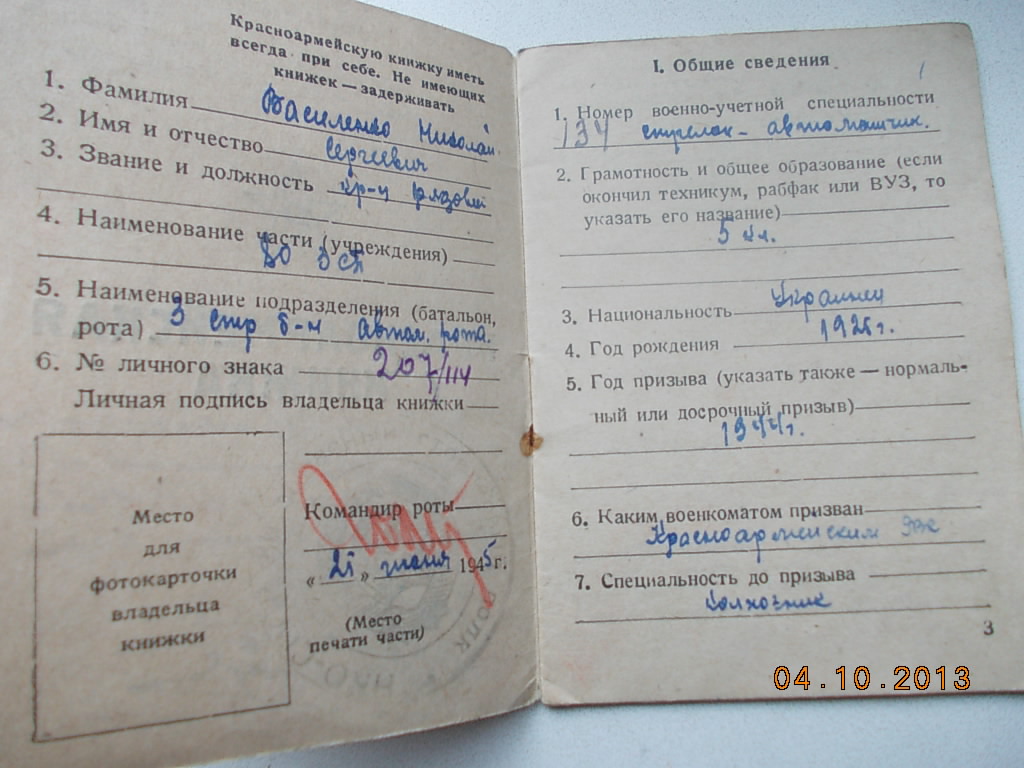 Красноармейскую книжку иметь
всегда при себе. Не имеющих
книжек — задерживать
1. Фамилия Василенко Николай
2. Имя и отчество Сергеевич
3. Звание и должность кр-ц рядовой
4. Наименование части (учреждения)
80 ЗСП
5. Наименование подразделения (батальон,
рота) 3 стр б-н автом. рота.
6. № личного знака 207/114
Личная подпись владельца книжки
Место
для
фотокарточки
владельца
книжки
Командир роты
« 21 » июня 1945 г.
(Место
печати части)
I. Общие сведения
1. Номер военно-учетной специальности
134 стрелок - автоматчик.
2. Грамотность и общее образование (если
окончил техникум, рабфак или ВУЗ, то
указать его название)
5 кл.
3. Национальность Украинец
4. Год рождения 1926 г.
5. Год призыва (указать также — нормаль-
ный или досрочный призыв)
1944 г.
6. Каким военкоматом призван
Красноармейским РВК
7. Специальность до призыва
колхозник
3
04.10.2013